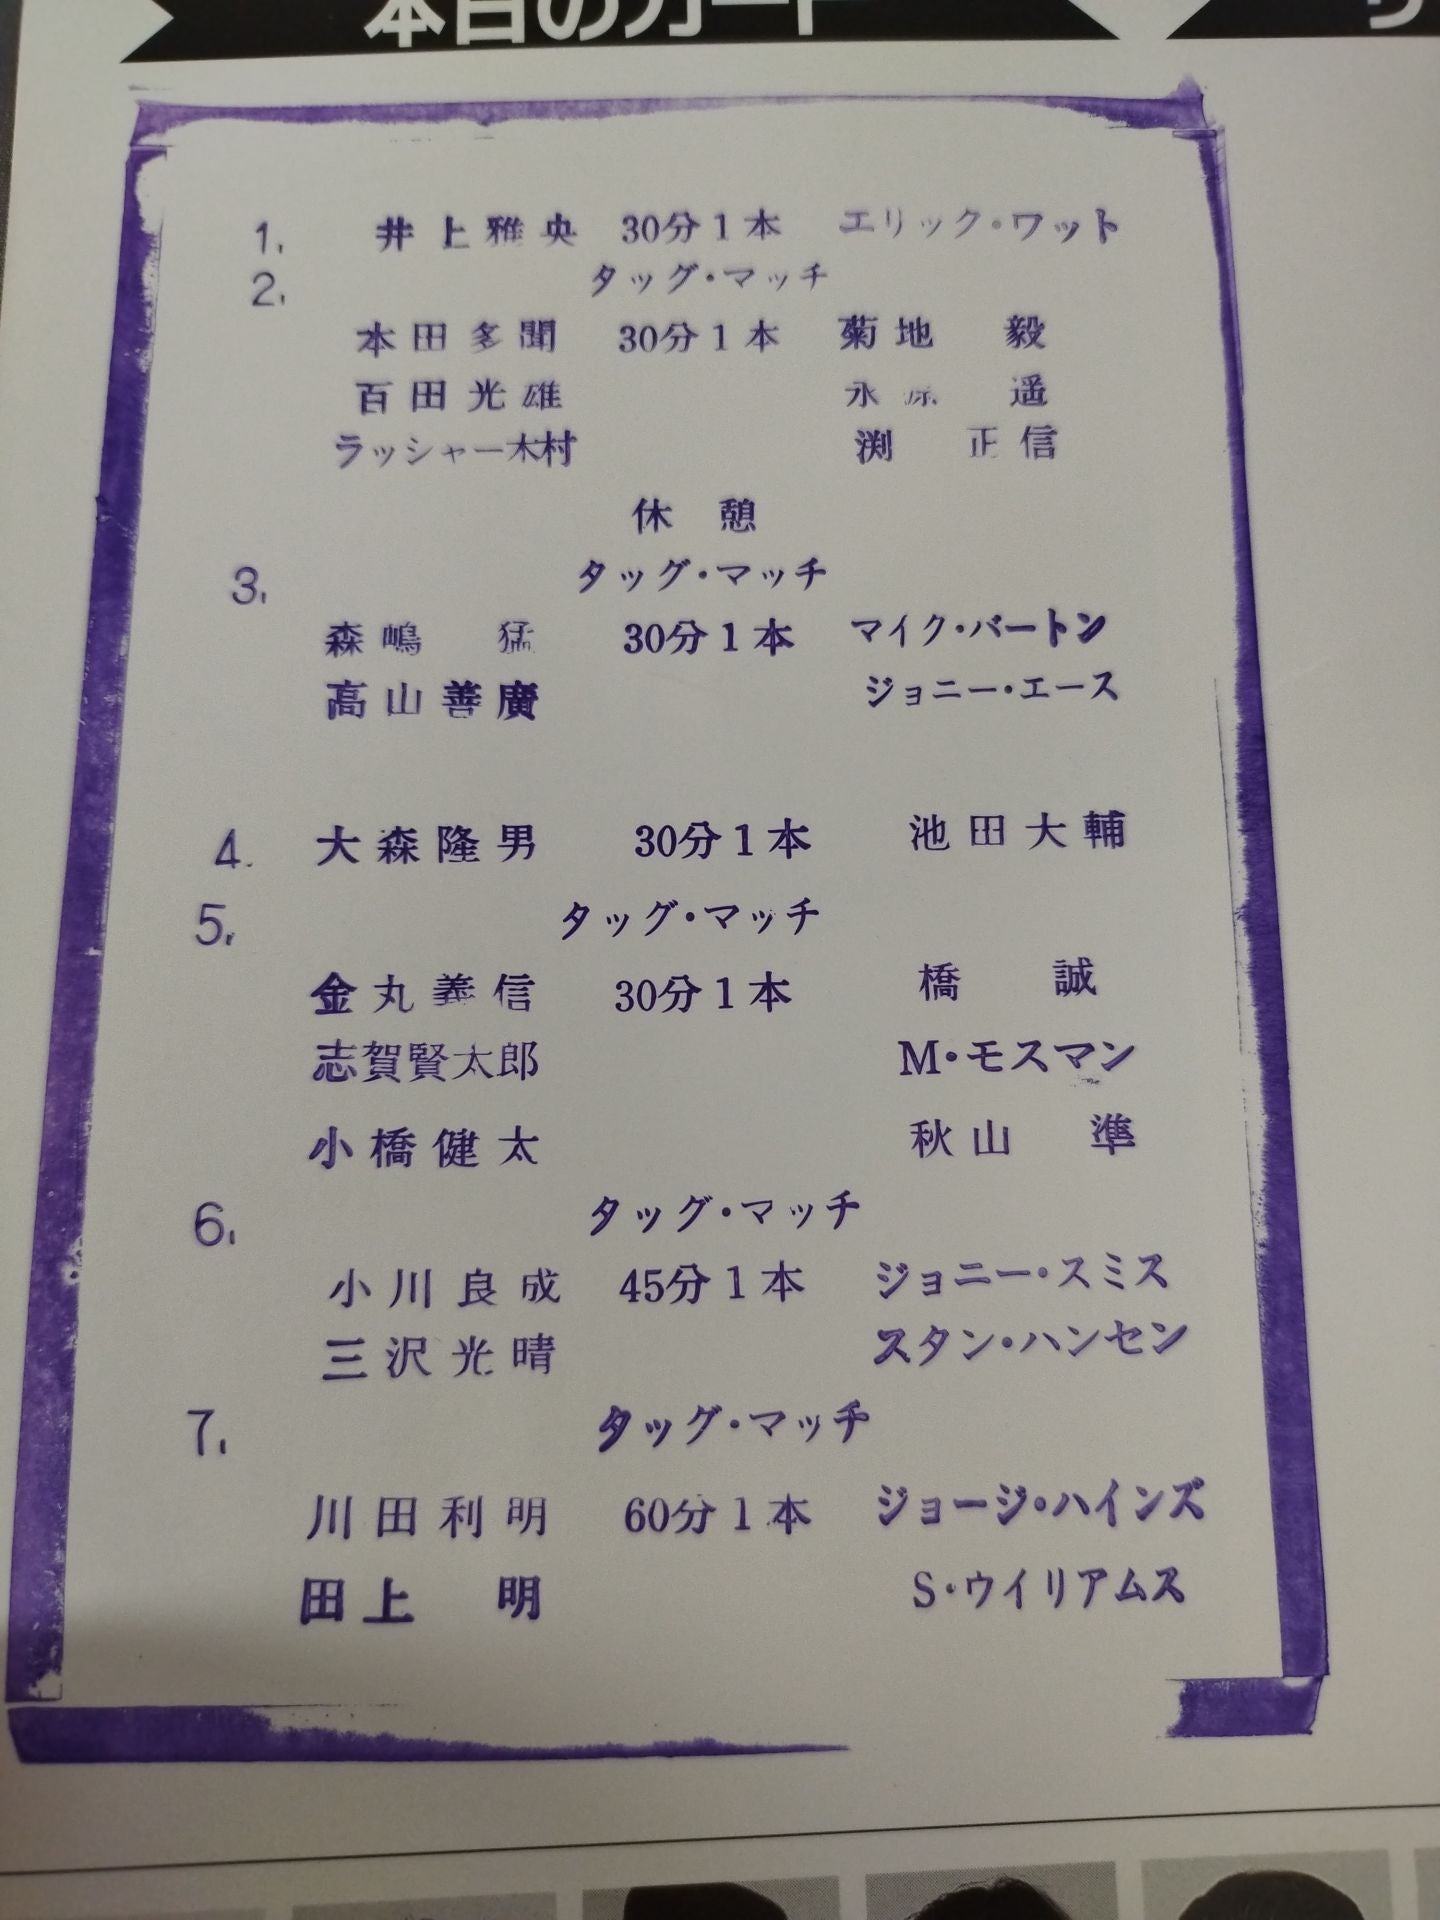 本日のカード
1. 井上雅央 30分1本 エリック・ワット
2. タッグ・マッチ
本田多聞 30分1本 菊地 毅
百田光雄 永源 遥
ラッシャー木村 渕 正信
休憩
3. タッグ・マッチ
森嶋 猛 30分1本 マイク・バートン
高山善廣 ジョニー・エース
4. 大森隆男 30分1本 池田大輔
5. タッグ・マッチ
金丸義信 30分1本 橋 誠
志賀賢太郎 M・モスマン
小橋健太 秋山 準
6. タッグ・マッチ
小川良成 45分1本 ジョニー・スミス
三沢光晴 スタン・ハンセン
7. タッグ・マッチ
川田利明 60分1本 ジョージ・ハインズ
田上 明 S・ウイリアムス